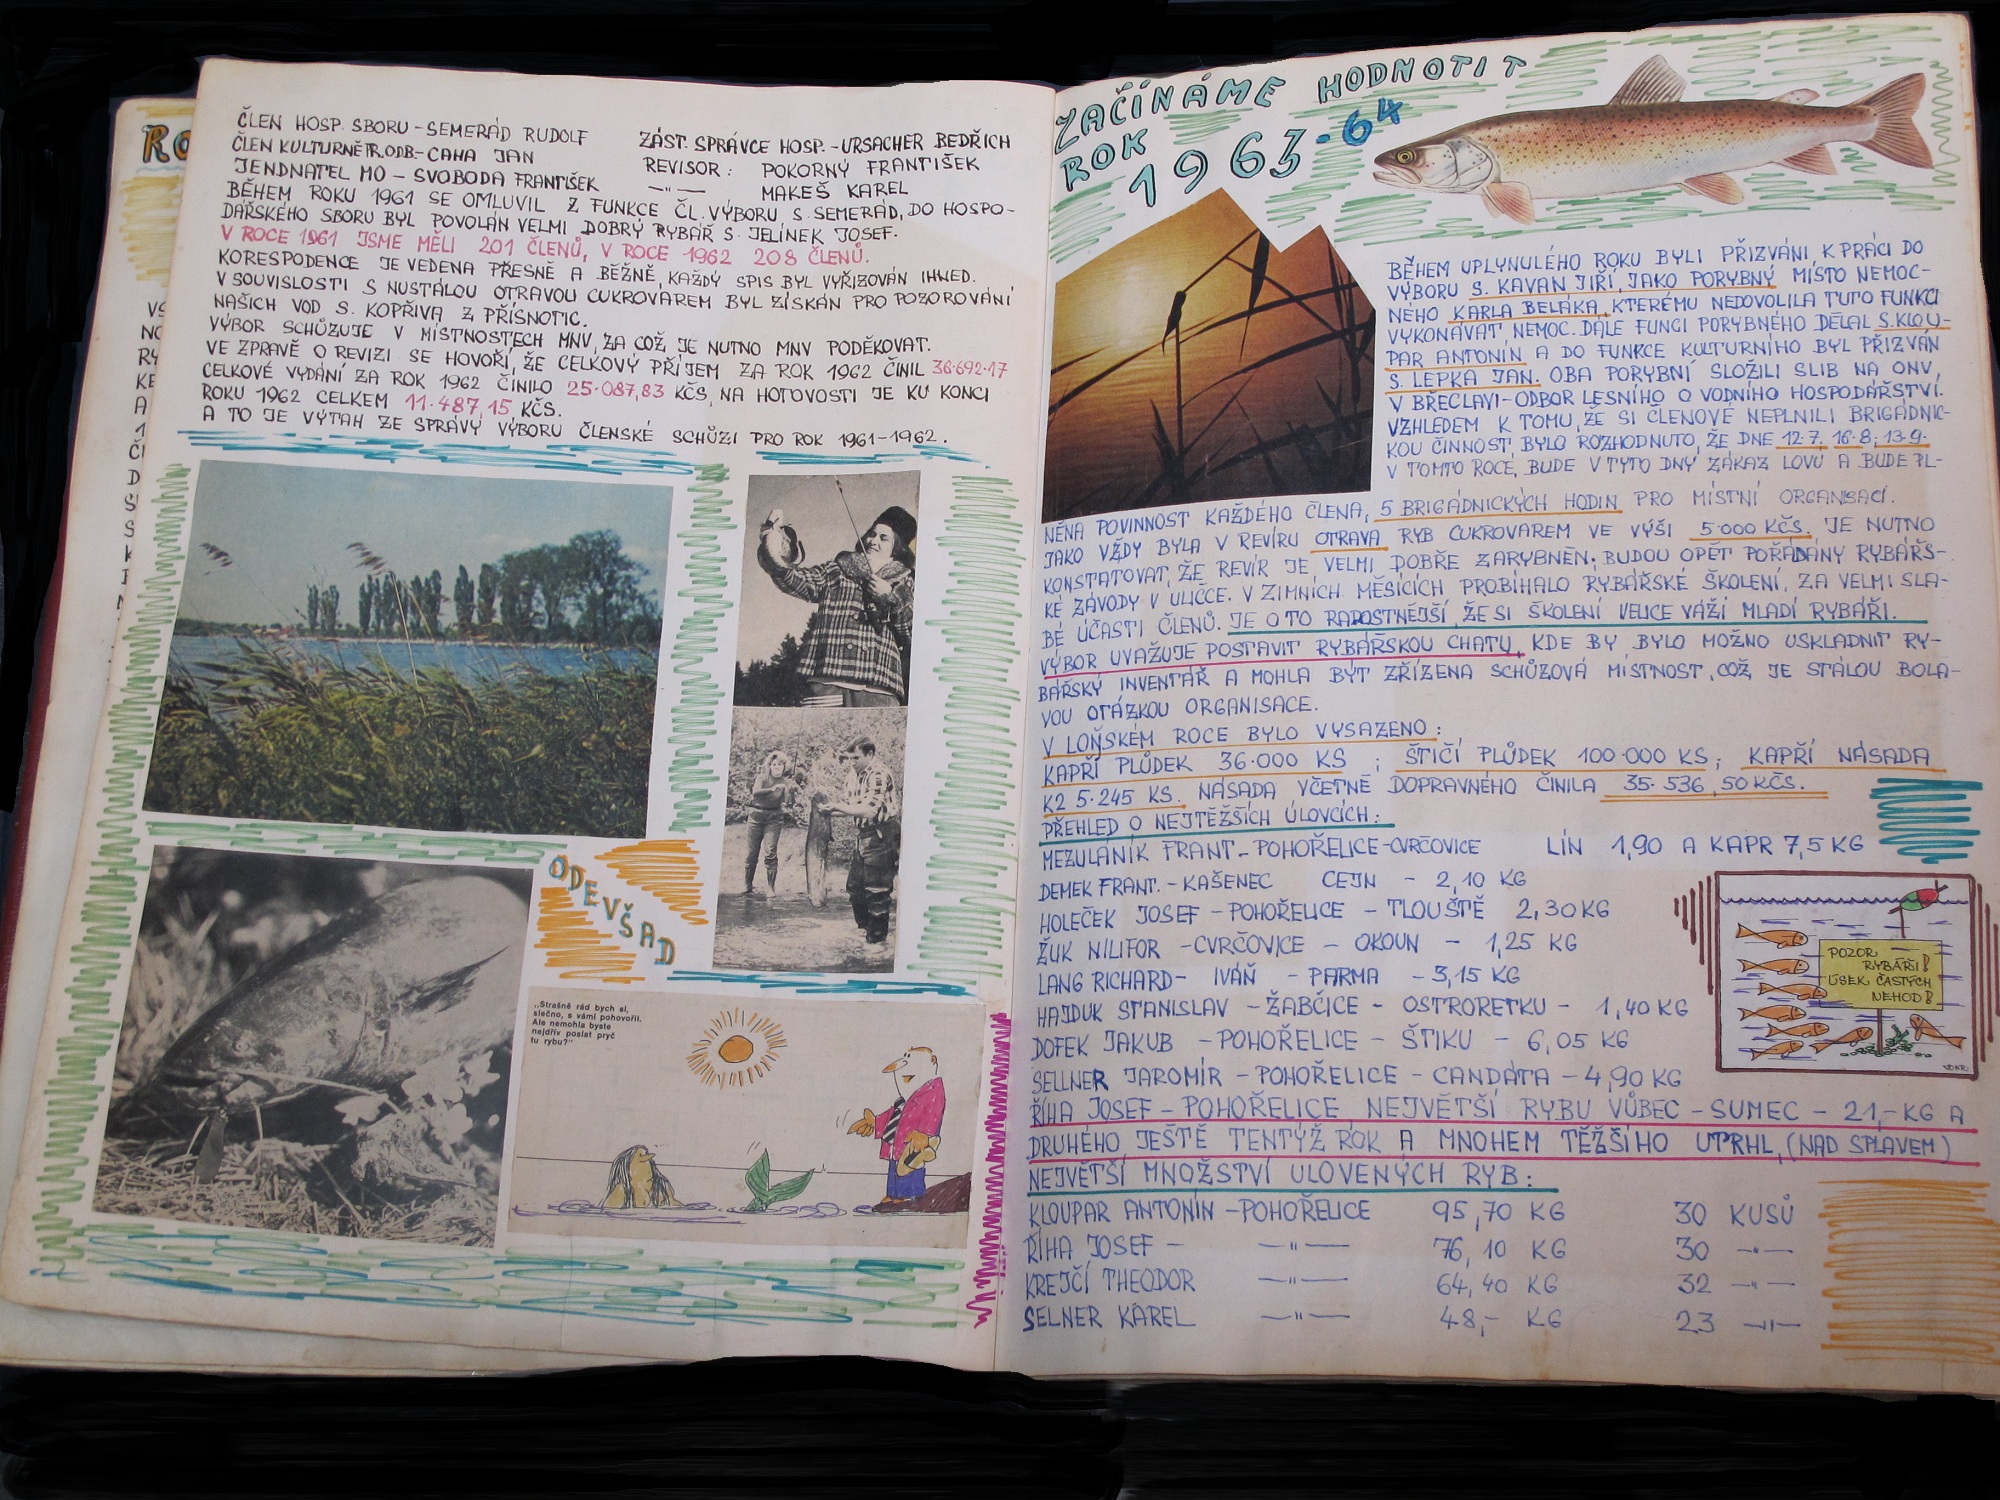 ČLEN HOSP. SBORU - SEMERÁD RUDOLF
ČLEN KULTURNĚ TR. ODB.- CAHA JAN
JENDNATEL MO - SVOBODA FRANTIŠEK
ZÁST. SPRÁVCE HOSP.- URSACHER BEDŘICH
REVISOR : POKORNÝ FRANTIŠEK
—"— MAKEŠ KAREL
BĚHEM ROKU 1961 SE OMLUVIL Z FUNKCE ČL. VÝBORU S. SEMERÁD, DO HOSPO-
DÁŘSKÉHO SBORU BYL POVOLÁN VELMI DOBRÝ RYBÁŘ S. JELÍNEK JOSEF.
V ROCE 1961 JSME MĚLI 201 ČLENŮ, V ROCE 1962 208 ČLENŮ.
KORESPODENCE JE VEDENA PŘESNĚ A BĚŽNĚ, KAŽDÝ SPIS BYL VYŘIZOVÁN IHNED.
V SOUVISLOSTI S NUSTÁLOU OTRAVOU CUKROVAREM BYL ZÍSKÁN PRO POZOROVÁNÍ
NAŠICH VOD S. KOPŘIVA Z PŘÍSNOTIC.
VÝBOR SCHŮZUJE V MÍSTNOSTECH MNV, ZA COŽ JE NUTNO MNV PODĚKOVAT.
VE ZPRAVĚ O REVIZI SE HOVOŘÍ, ŽE CELKOVÝ PŘÍJEM ZA ROK 1962 ČINIL 36·692·17
CELKOVÉ VYDÁNÍ ZA ROK 1962 ČINILO 25·087,83 KČS, NA HOTOVOSTI JE KU KONCI
ROKU 1962 CELKEM 11·487,15 KČS.
A TO JE VÝTAH ZE SPRÁVY VÝBORU ČLENSKÉ SCHŮZI PRO ROK 1961-1962.
ODEVŠAD
„Strašně rád bych si,
slečno, s vámi pohovořil.
Ale nemohla byste
nejdřív poslat pryč
tu rybu?"
ZAČÍNÁME HODNOTIT
ROK
1963-64
BĚHEM UPLYNULÉHO ROKU BYLI PŘIZVÁNI K PRÁCI DO
VÝBORU S. KAVAN JIŘÍ, JAKO PORYBNÝ MÍSTO NEMOC-
NÉHO KARLA BELÁKA, KTERÉMU NEDOVOLILA TUTO FUNKCI
VYKONÁVAT, NEMOC. DÁLE FUNGI PORYBNÉHO DĚLAL S. KLOU-
PAR ANTONÍN A DO FUNKCE KULTURNÍHO BYL PŘIZVÁN
S. LEPKA JAN. OBA PORYBNÍ SLOŽILI SLIB NA ONV,
V BŘECLAVI-ODBOR LESNÍHO O VODNÍHO HOSPODÁŘSTVÍ.
VZHLEDEM K TOMU, ŽE SI ČLENOVÉ NEPLNILI BRIGÁDNIC-
KOU ČINNOST, BYLO ROZHODNUTO, ŽE DNE 12·7, 16·8, 13·9.
V TOMTO ROCE, BUDE V TYTO DNY ZÁKAZ LOVU A BUDE PL-
NĚNA POVINNOST KAŽDÉHO ČLENA, 5 BRIGÁDNICKÝCH HODIN PRO MÍSTNÍ ORGANISACI.
JAKO VŽDY BYLA V REVÍRU OTRAVA RYB CUKROVAREM VE VÝŠI 5·000 KČS. JE NUTNO
KONSTATOVAT, ŽE REVÍR JE VELMI DOBŘE ZARYBNĚN. BUDOU OPĚT POŘÁDÁNY RYBÁŘS-
KÉ ZÁVODY V ULIČCE. V ZIMNÍCH MĚSÍCÍCH PROBÍHALO RYBÁŘSKÉ ŠKOLENÍ, ZA VELMI SLA-
BÉ ÚČASTI ČLENŮ. JE O TO RADOSTNĚJŠÍ, ŽE SI ŠKOLENÍ VELICE VÁŽÍ MLADÍ RYBÁŘI.
VÝBOR UVAŽUJE POSTAVIT RYBÁŘSKOU CHATU, KDE BY BYLO MOŽNO USKLADNIT RY-
BÁŘSKÝ INVENTÁŘ A MOHLA BÝT ZŘÍZENA SCHŮZOVÁ MÍSTNOST, COŽ JE STÁLOU BOLA-
VOU OTÁZKOU ORGANISACE.
V LOŇSKÉM ROCE BYLO VYSAZENO :
KAPŘÍ PLŮDEK 36·000 KS ; ŠTIČÍ PLŮDEK 100·000 KS ; KAPŘÍ NÁSADA
K2 5·245 KS. NÁSADA VČETNĚ DOPRAVNÉHO ČINILA 35·536,50 KČS.
PŘEHLED O NEJTĚŽŠÍCH ÚLOVCÍCH :
MEZULÁNÍK FRANT - POHOŘELICE-CVRČOVICE LÍN 1,90 A KAPR 7,5 KG
DEMEK FRANT. - KAŠENEC CEJN - 2,10 KG
HOLEČEK JOSEF - POHOŘELICE - TLOUŠTĚ 2,30 KG
ŽUK NILIFOR - CVRČOVICE - OKOUN - 1,25 KG
LANG RICHARD - IVÁŇ - PARMA - 3,15 KG
HAJDUK STANISLAV - ŽABČICE - OSTRORETKU - 1,40 KG
DOFEK JAKUB - POHOŘELICE - ŠTIKU - 6,05 KG
SELLNER JAROMÍR - POHOŘELICE - CANDÁTA - 4,90 KG
ŘÍHA JOSEF - POHOŘELICE NEJVĚTŠÍ RYBU VŮBEC - SUMEC - 21,- KG A
DRUHÉHO JEŠTĚ TENTÝŽ ROK A MNOHEM TĚŽŠÍHO UTRHL, (NAD SPLAVEM)
NEJVĚTŠÍ MNOŽSTVÍ ULOVENÝCH RYB :
KLOUPAR ANTONÍN - POHOŘELICE 95,70 KG 30 KUSŮ
ŘÍHA JOSEF - —"— 76,10 KG 30 —"—
KREJČÍ THEODOR —"— 64,40 KG 32 —"—
SELNER KAREL —"— 48,- KG 23 —"—
POZOR
RYBÁŘI!
ÚSEK ČASTÝCH
NEHOD!